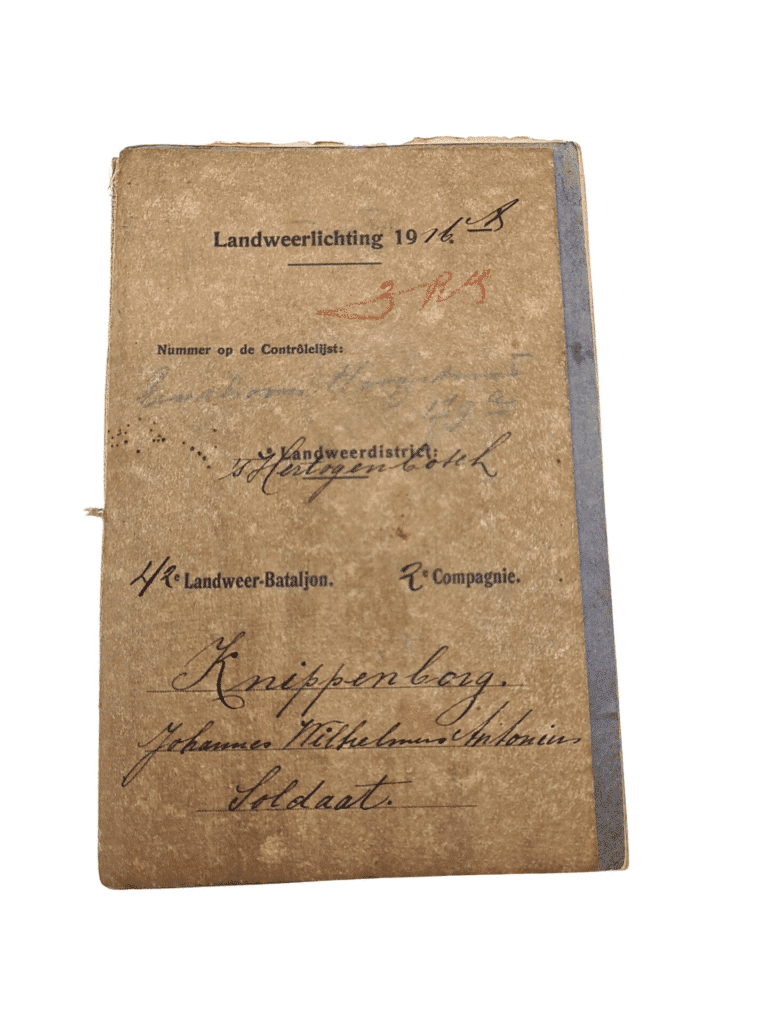 Landweerlichting 1916
3
Nummer op de Contrôlelijst:
Landweerdistrict:
's Hertogenbosch
42e Landweer-Bataljon. 2e Compagnie.
Knippenborg.
Johannes Wilhelmus Antonius
Soldaat.